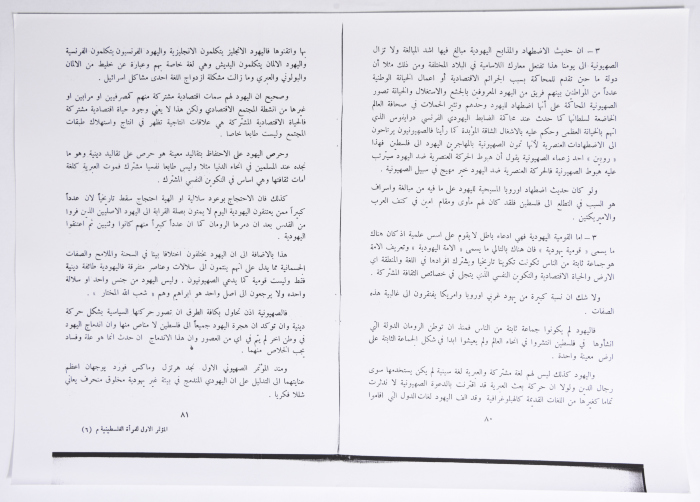 ٣ — ان حديث الاضطهاد والمذابح اليهودية مبالغ فيها اشد المبالغة ولا تزال
الصهيونية الى يومنا هذا تفتعل معارك اللاسامية في البلاد المختلفة ومن ذلك مثلا أن
دولة ما حين تقدم للمحاكمة بسبب الجرائم الاقتصادية أو اعمال الخيانة الوطنية
عدداً من المواطنين بينهم فريق من اليهود المعروفين بالجشع والاستغلال والخيانة تصور
الصهيونية المحاكمة على أنها اضطهاد لليهود وحدهم وتثير الحملات في صحافة العالم
الخاضعة لسلطانها كما حدث عند محاكمة الضابط اليهودي الفرنسي درايفوس الذي
اتهم بالخيانة العظمى وحكم عليه بالاشغال الشاقة المؤبدة كما رأينا فالصهيونيون يرتاحون
الى الاضطهادات العنصرية لأنها تمون الصهيونية بالمهاجرين اليهود الى فلسطين فهذا
« روبين » احد زعماء الصهيونية يقول أن هبوط الحركة العنصرية ضد اليهود سيترتب
عليه هبوط الصهيونية فالحركة العنصرية ضد اليهود خير مهيج في سبيل الصهيونية .
ولو كان حديث اضطهاد اوروبا المسيحية لليهود على ما فيه من مبالغة واسراف
هو السبب في التطلع الى فلسطين فقد كان لهم مأوى ومقام امين في كنف العرب
والاميريكتين .
٣ — اما القومية اليهودية فهي ادعاء باطل لا يقوم على اسس علمية اذ كان هناك
ما يسمى « قومية يهودية » فان هناك بالتالي ما يسمى « الامة اليهودية » وتعريف الامة
هو جماعة ثابتة من الناس تكونت تكوينا تاريخيا ويشترك افرادها في اللغة والمنطقة اي
الارض والحياة الاقتصادية والتكوين النفسي الذي يتجلى في خصائص الثقافة المشتركة .
ولا شك ان نسبة كبيرة من يهود غربي اوروبا وامريكا يفتقرون الى غالبية هذه
الصفات .
فاليهود لم يكونوا جماعة ثابتة من الناس فمنذ ان توطن الرومان الدولة التي
أنشأوها في فلسطين انتشروا في انحاء العالم ولم يعيشوا ابدا في شكل الجماعة الثابتة على
ارض معينة واحدة .
واليهود كذلك ليس لهم لغة مشتركة والعبرية لغة سينية لم يكن يستخدمها سوى
رجال الدين ولولا ان حركة بعث العبرية قد اقترنت بالدعوة الصهيونية لاندثرت
تماما كغيرها من اللغات القديمة كالهيلوغرافية وقد الف اليهود لغات الدول التي اقاموا
٨٠
بها واتقنوها فاليهود الانجليز يتكلمون الانجليزية واليهود الفرنسيون يتكلمون الفرنسية
واليهود الالمان يتكلمون اليديش وهي لغة خاصة بهم وعبارة عن خليط من الالمان
والبولوني والعبري وما زالت مشكلة ازدواج اللغة احدى مشاكل اسرائيل .
وصحيح ان اليهود لهم سمات اقتصادية مشتركة منهم كمصرفيين او مرابين او
غيرها من انشطة المجتمع الاقتصادي ولكن هذا لا يعني وجود حياة اقتصادية مشتركة
فالحياة الاقتصادية المشتركة هي علاقات انتاجية تظهر في انتاج واستهلاك طبقات
المجتمع وليست طابعا خاصا .
وحرص اليهود على الاحتفاظ بتقاليد معينة هو حرص على تقاليد دينية وهو ما
نجده عند المسلمين في انحاء الدنيا مثلا وليس طابعا نفسيا مشترك فموت العبرية كلغة
أمات ثقافتها وهي اساس في التكوين النفسي المشترك .
كذلك فان الاحتجاج بوعود سلالية او الهية احتجاج سقط تاريخياً لان عدداً
كبيراً ممن يعتنقون اليهودية اليوم لا يمتون بصلة القرابة الى اليهود الاصليين الذين فروا
من القدس بعد ان دمرها الرومان كما ان عدداً كبيراً منهم كانوا وثنيين ثم اعتنقوا
اليهودية .
هذا بالاضافة الى ان اليهود يختلفون اختلافا بينا في السحنة والملامح والصفات
الجسمانية مما يدل على أنهم ينتمون الى سلالات وعناصر متفرقة فاليهودية طائفة دينية
فقط وليست قومية كما يدعي الصهيونيون . وليس اليهود من جنس واحد او سلالة
واحدة ولا يرجعون الى اصل واحد هو ابراهيم وهم « شعب الله المختار » .
فالصهيونية اذن تحاول بكافة الطرق ان تصور حركتها السياسية بشكل حركة
دينية وان تؤكد ان هجرة اليهود جميعاً الى فلسطين لا مناص منها وان اندماج اليهود
في وطن آخر لم يتم في اي من العصور وان هذا الاندماج ان حدث انما هو علة وفساد
يجب الخلاص منهما .
ومنذ المؤتمر الصهيوني الاول نجد هرتزل وماكس فورد يوجهان اعظم
عنايتهما الى التدليل على ان اليهودي المندمج في بيئة غير يهودية مخلوق منحرف يعاني
شللا فكريا .
٨١
المؤتمر الاول للمرأة الفلسطينية م (٦)